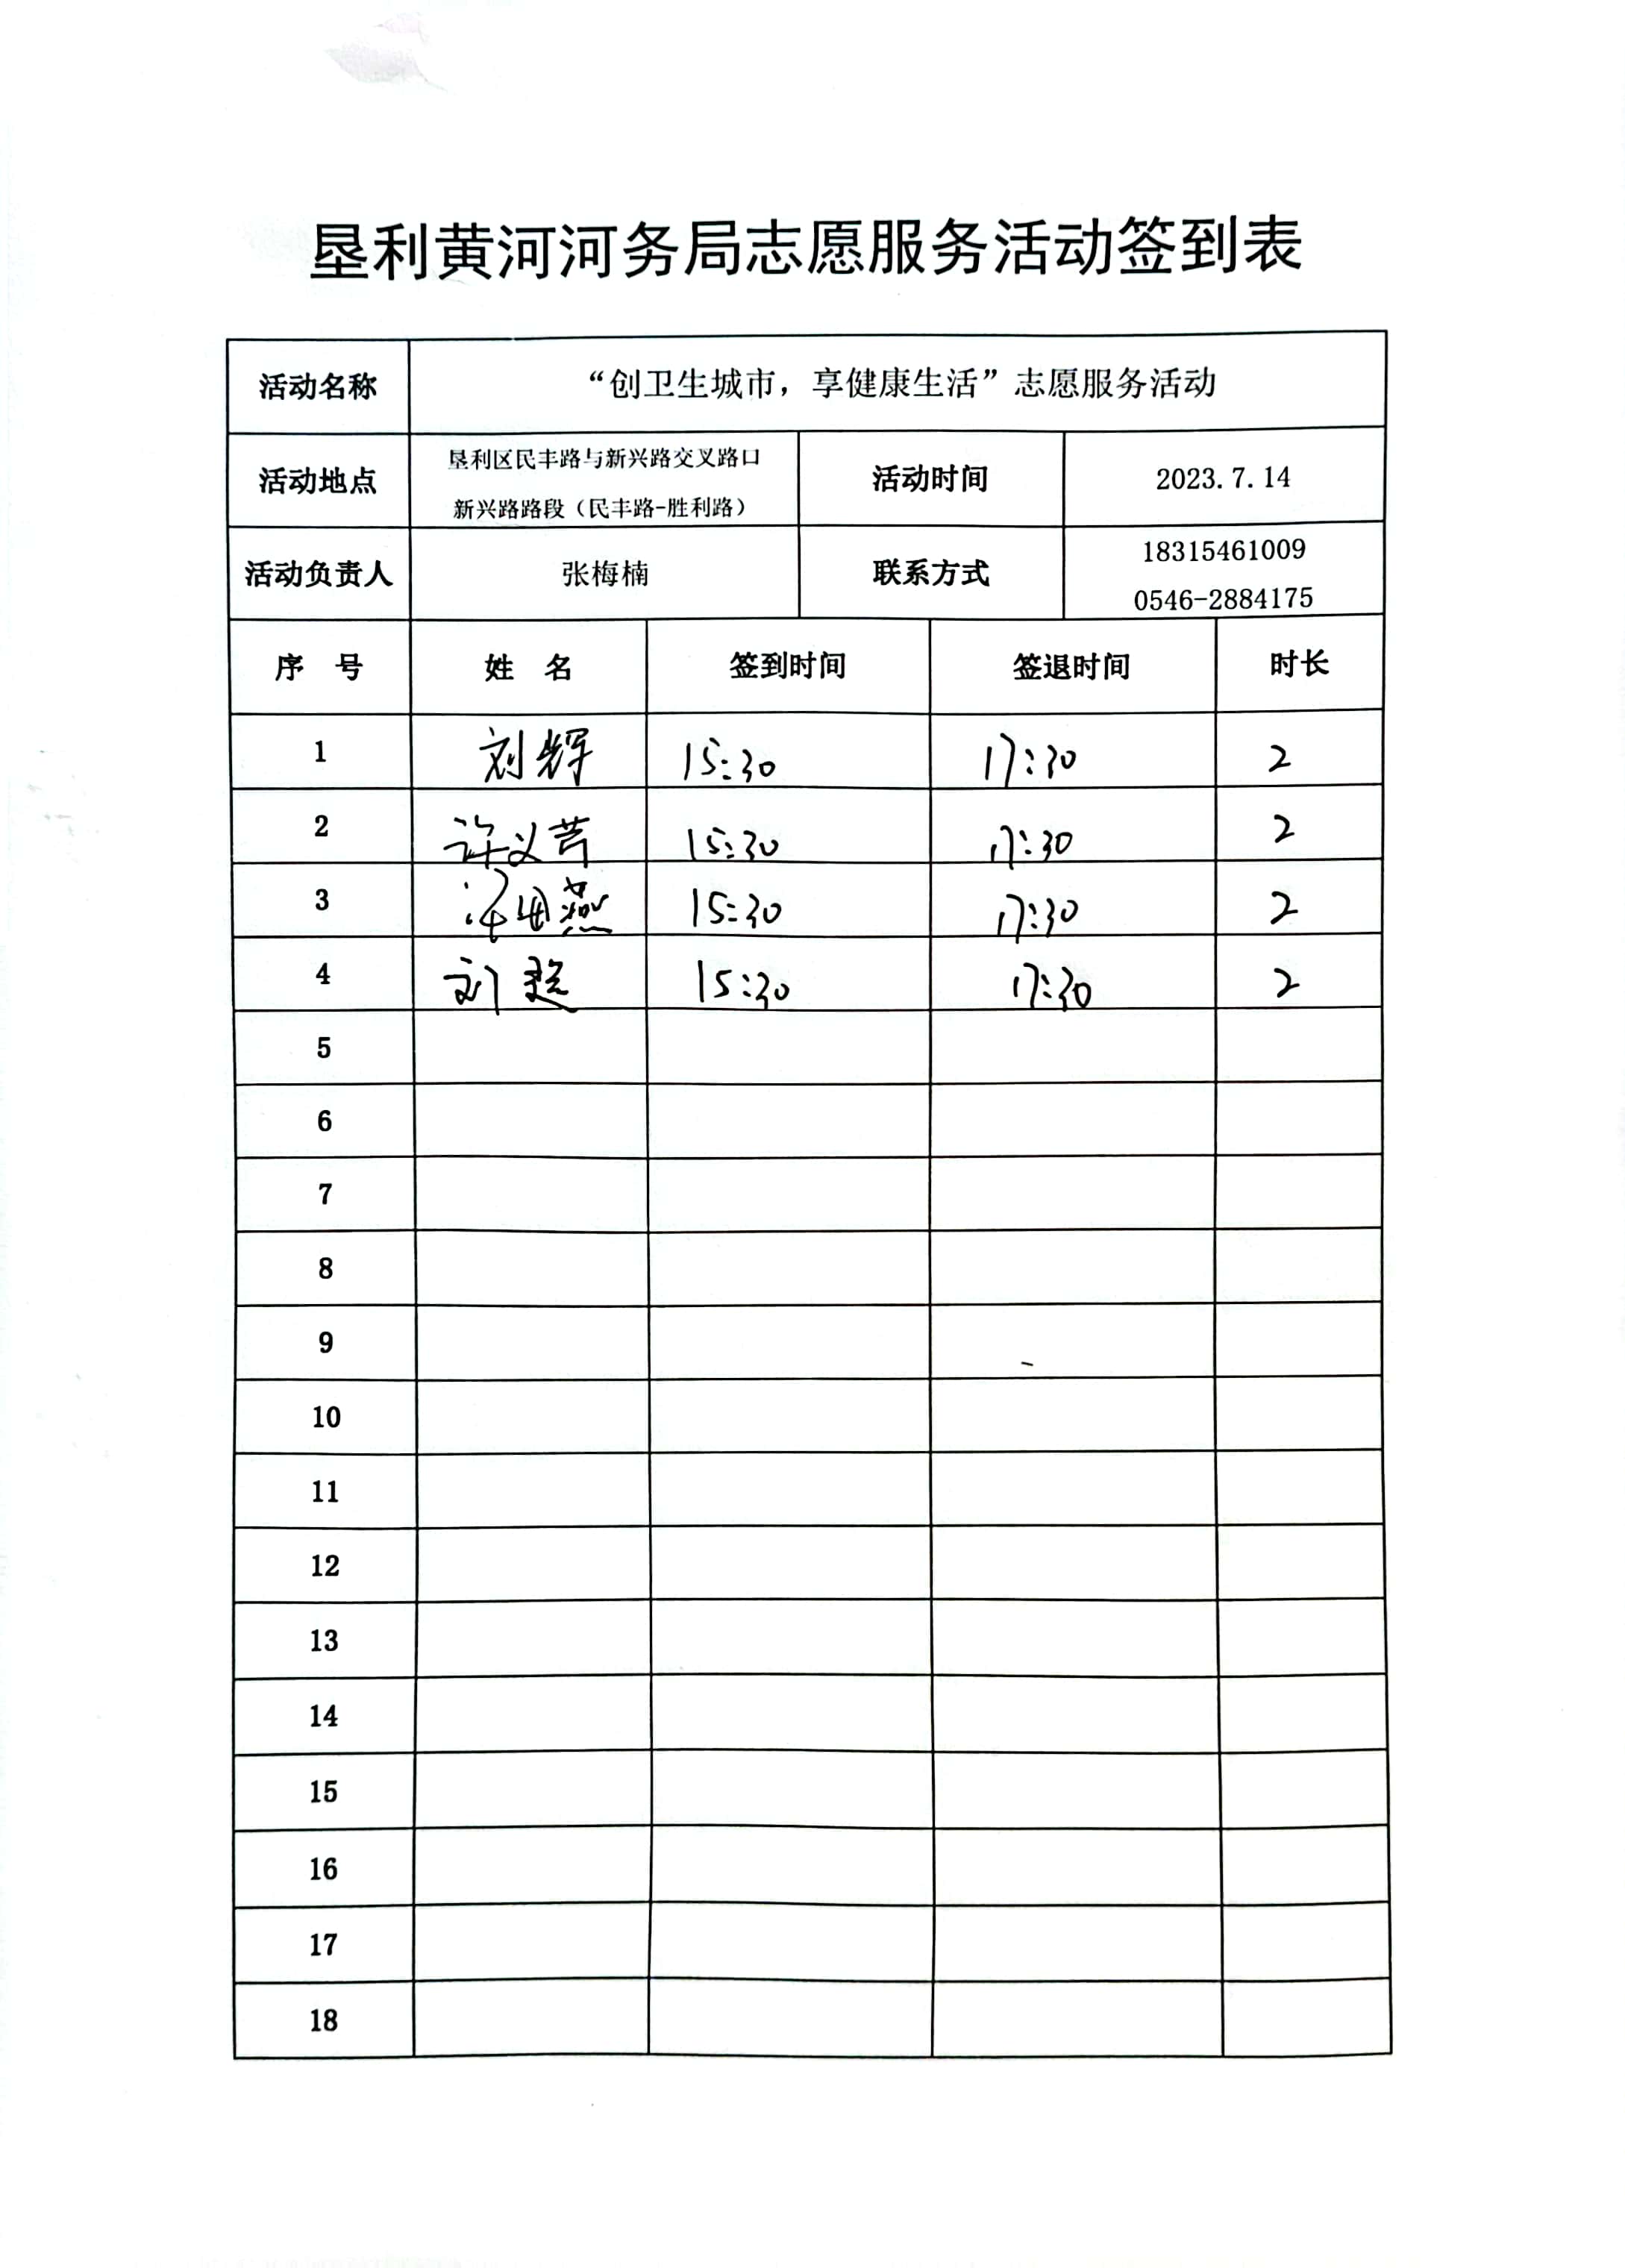 垦利黄河河务局志愿服务活动签到表
活动名称 “创卫生城市，享健康生活”志愿服务活动
活动地点 垦利区民丰路与新兴路交叉路口 活动时间 2023.7.14
新兴路路段（民丰路-胜利路）
活动负责人 张梅楠 联系方式 18315461009
0546-2884175
序 号 姓 名 签到时间 签退时间 时长
1 刘辉 15:30 17:30 2
2 许义 15:30 17:30 2
3 燕 15:30 17:30 2
4 刘超 15:30 17:30 2
5
6
7
8
9
10
11
12
13
14
15
16
17
18